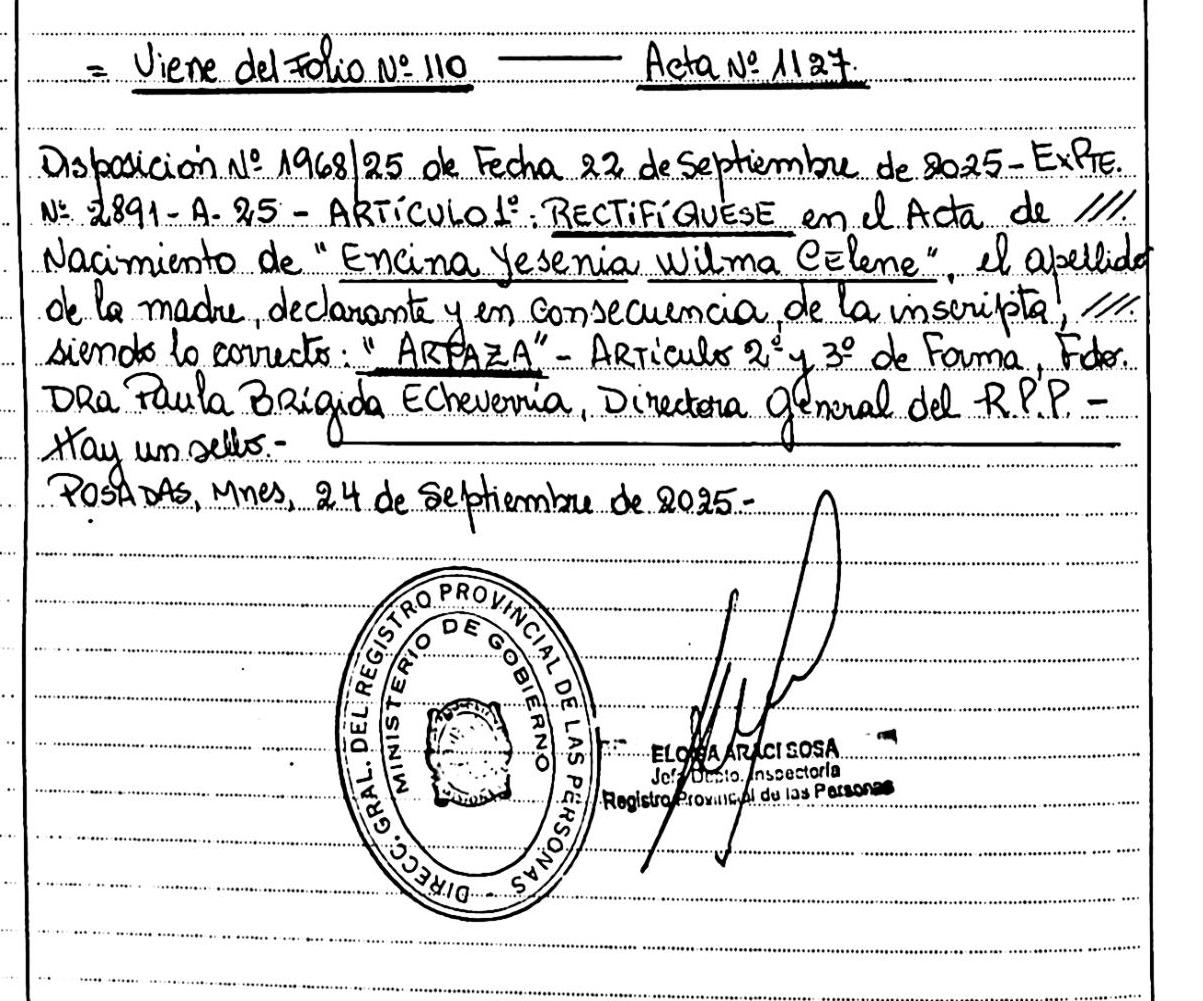 = Viene del Folio Nº 110 — Acta Nº 1127.
Disposición Nº 1968/25 de Fecha 22 de Septiembre de 2025 - EXPTE.
Nº 2891 - A - 25 - ARTÍCULO 1º: RECTIFÍQUESE en el Acta de ///.
Nacimiento de "Encina Yesenia Wilma CElene", el apellido
de la madre, declarante y en consecuencia, de la inscripta, ///.
siendo lo correcto: " ARPAZA" - ARTículo 2º y 3º de Forma, Fdo.
DRa Paula BRígida Echeverría, Directora General del R.P.P. -
Hay un sello.-
POSADAS, Mnes, 24 de Septiembre de 2025 -
DIRECC. GRAL. DEL REGISTRO PROVINCIAL DE LAS PERSONAS -
MINISTERIO DE GOBIERNO
ELOISA ARACI SOSA
Jefa Dpto. Inspectoría
Registro Provincial de las Personas